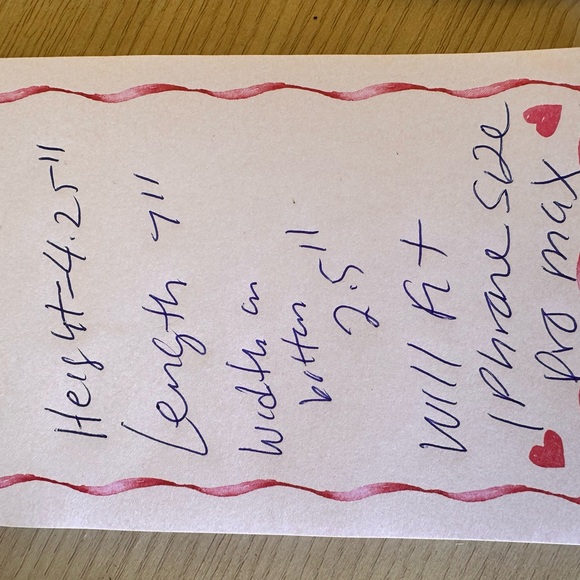 Height=4.25"
Length 7"
Width on
bottom
2.5"
Will fit
iPhone size
pro max